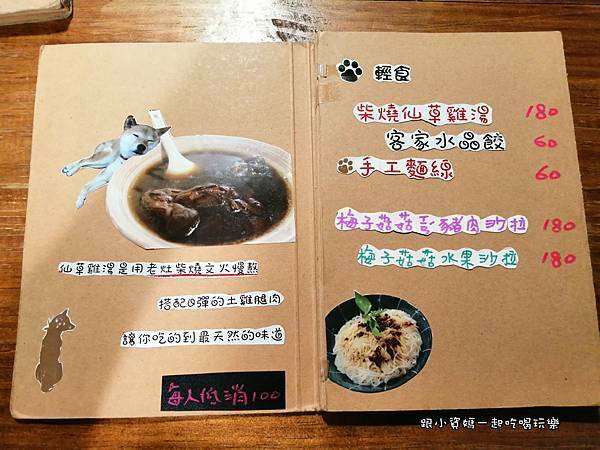 仙草雞湯是用老灶柴燒文火慢熬
搭配Q彈的土雞腿肉
讓你吃的到最天然的味道
每人低消100
輕食
柴燒仙草雞湯 180
客家水晶餃 60
手工麵線 60
梅子菇菇豬肉沙拉 180
梅子菇菇水果沙拉 180
跟小資媽一起吃喝玩樂